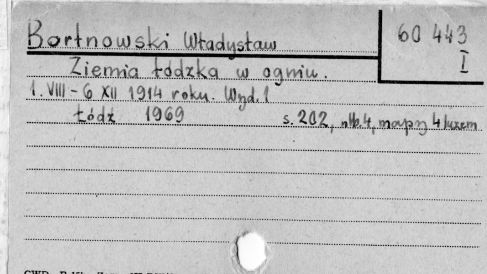 Bortnowski Władysław
60 443
I
Ziemia łódzka w ogniu.
1. VIII - 6 XII 1914 roku. Wyd. 1
Łódź 1969
s. 202, nlb. 4, mapy 4 luzem